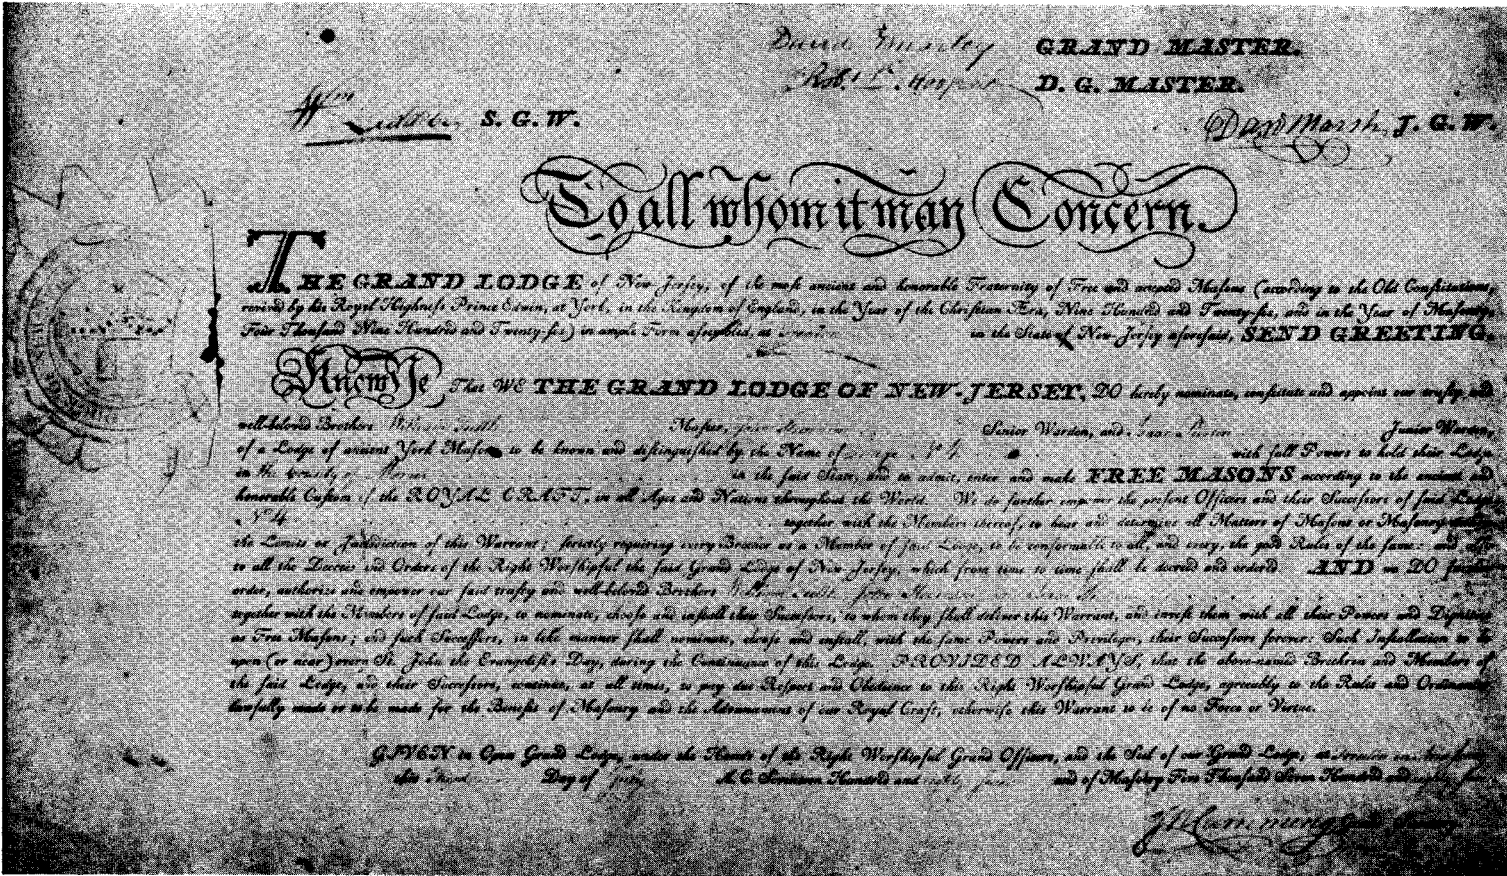 GRAND MASTER.
D. G. MASTER.
Wm S. G. W.
David Marsh J. G. W.
To all whom it may Concern.
THE GRAND LODGE of New Jersey, of the most ancient and honorable Fraternity of Free and accepted Masons (according to the Old Constitutions,
revived by his Royal Highness Prince Edwin, at York, in the Kingdom of England, in the Year of the Christian Æra, Nine Hundred and Twenty-six, and in the Year of Masonry,
Four Thousand Nine Hundred and Twenty-six) in ample Form assembled, at in the State of New-Jersey aforesaid, SEND GREETING.
Know Ye That WE THE GRAND LODGE OF NEW-JERSEY, DO hereby nominate, constitute and appoint our trusty and
well-beloved Brothers Master, Senior Warden, and Junior Warden,
of a Lodge of ancient York Masons to be known and distinguished by the Name of No 4 with full Powers to hold their Lodge
in the County of in the said State, and to admit, enter and make FREE MASONS according to the ancient and
honorable Custom of the ROYAL CRAFT, in all Ages and Nations throughout the World. We do further empower the present Officers and their Successors of said Lodge
No 4 together with the Members thereof, to hear and determine all Matters of Masons or Masonry
the Limits or Jurisdiction of this Warrant; strictly requiring every Brother as a Member of said Lodge, to be conformable to all, and every, the good Rules of the same: and also
to all the Decrees and Orders of the Right Worshipful the said Grand Lodge of New Jersey, which from time to time shall be decreed and ordered AND we DO further
order, authorize and empower our said trusty and well-beloved Brothers
together with the Members of said Lodge, to nominate, choose and install their Successors, to whom they shall deliver this Warrant, and invest them with all their Powers and Dignities
as Free Masons; and such Successors, in like manner shall nominate, choose and install, with the same Powers and Privileges, their Successors forever: Such Installation to be
upon (or near) every St. John the Evangelist's Day, during the Continuance of this Lodge. PROVIDED ALWAYS, that the above-named Brethren and Members of
the said Lodge, and their Successors, continue, at all times, to pay due Respect and Obedience to this Right Worshipful Grand Lodge, agreeably to the Rules and Ordinances
lawfully made or to be made for the Benefit of Masonry and the Advancement of our Royal Craft, otherwise this Warrant to be of no Force or Virtue.
GIVEN in Open Grand Lodge, under the Hands of the Right Worshipful Grand Officers, and the Seal of our Grand Lodge; at
this Day of A. C. Seventeen Hundred and and of Masonry Five Thousand Seven Hundred and